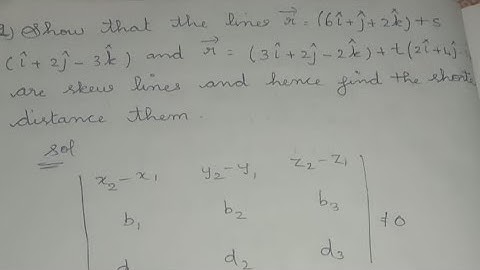 2) Show that the lines r⃗ = (6î + ĵ + 2k̂) + s
(î + 2ĵ - 3k̂) and r⃗ = (3î + 2ĵ - 2k̂) + t(2î + 4ĵ
are skew lines and hence find the
distance them.
Sol
x₂ - x₁ y₂ - y₁ z₂ - z₁
b₁ b₂ b₃ ≠ 0
d₂ d₃